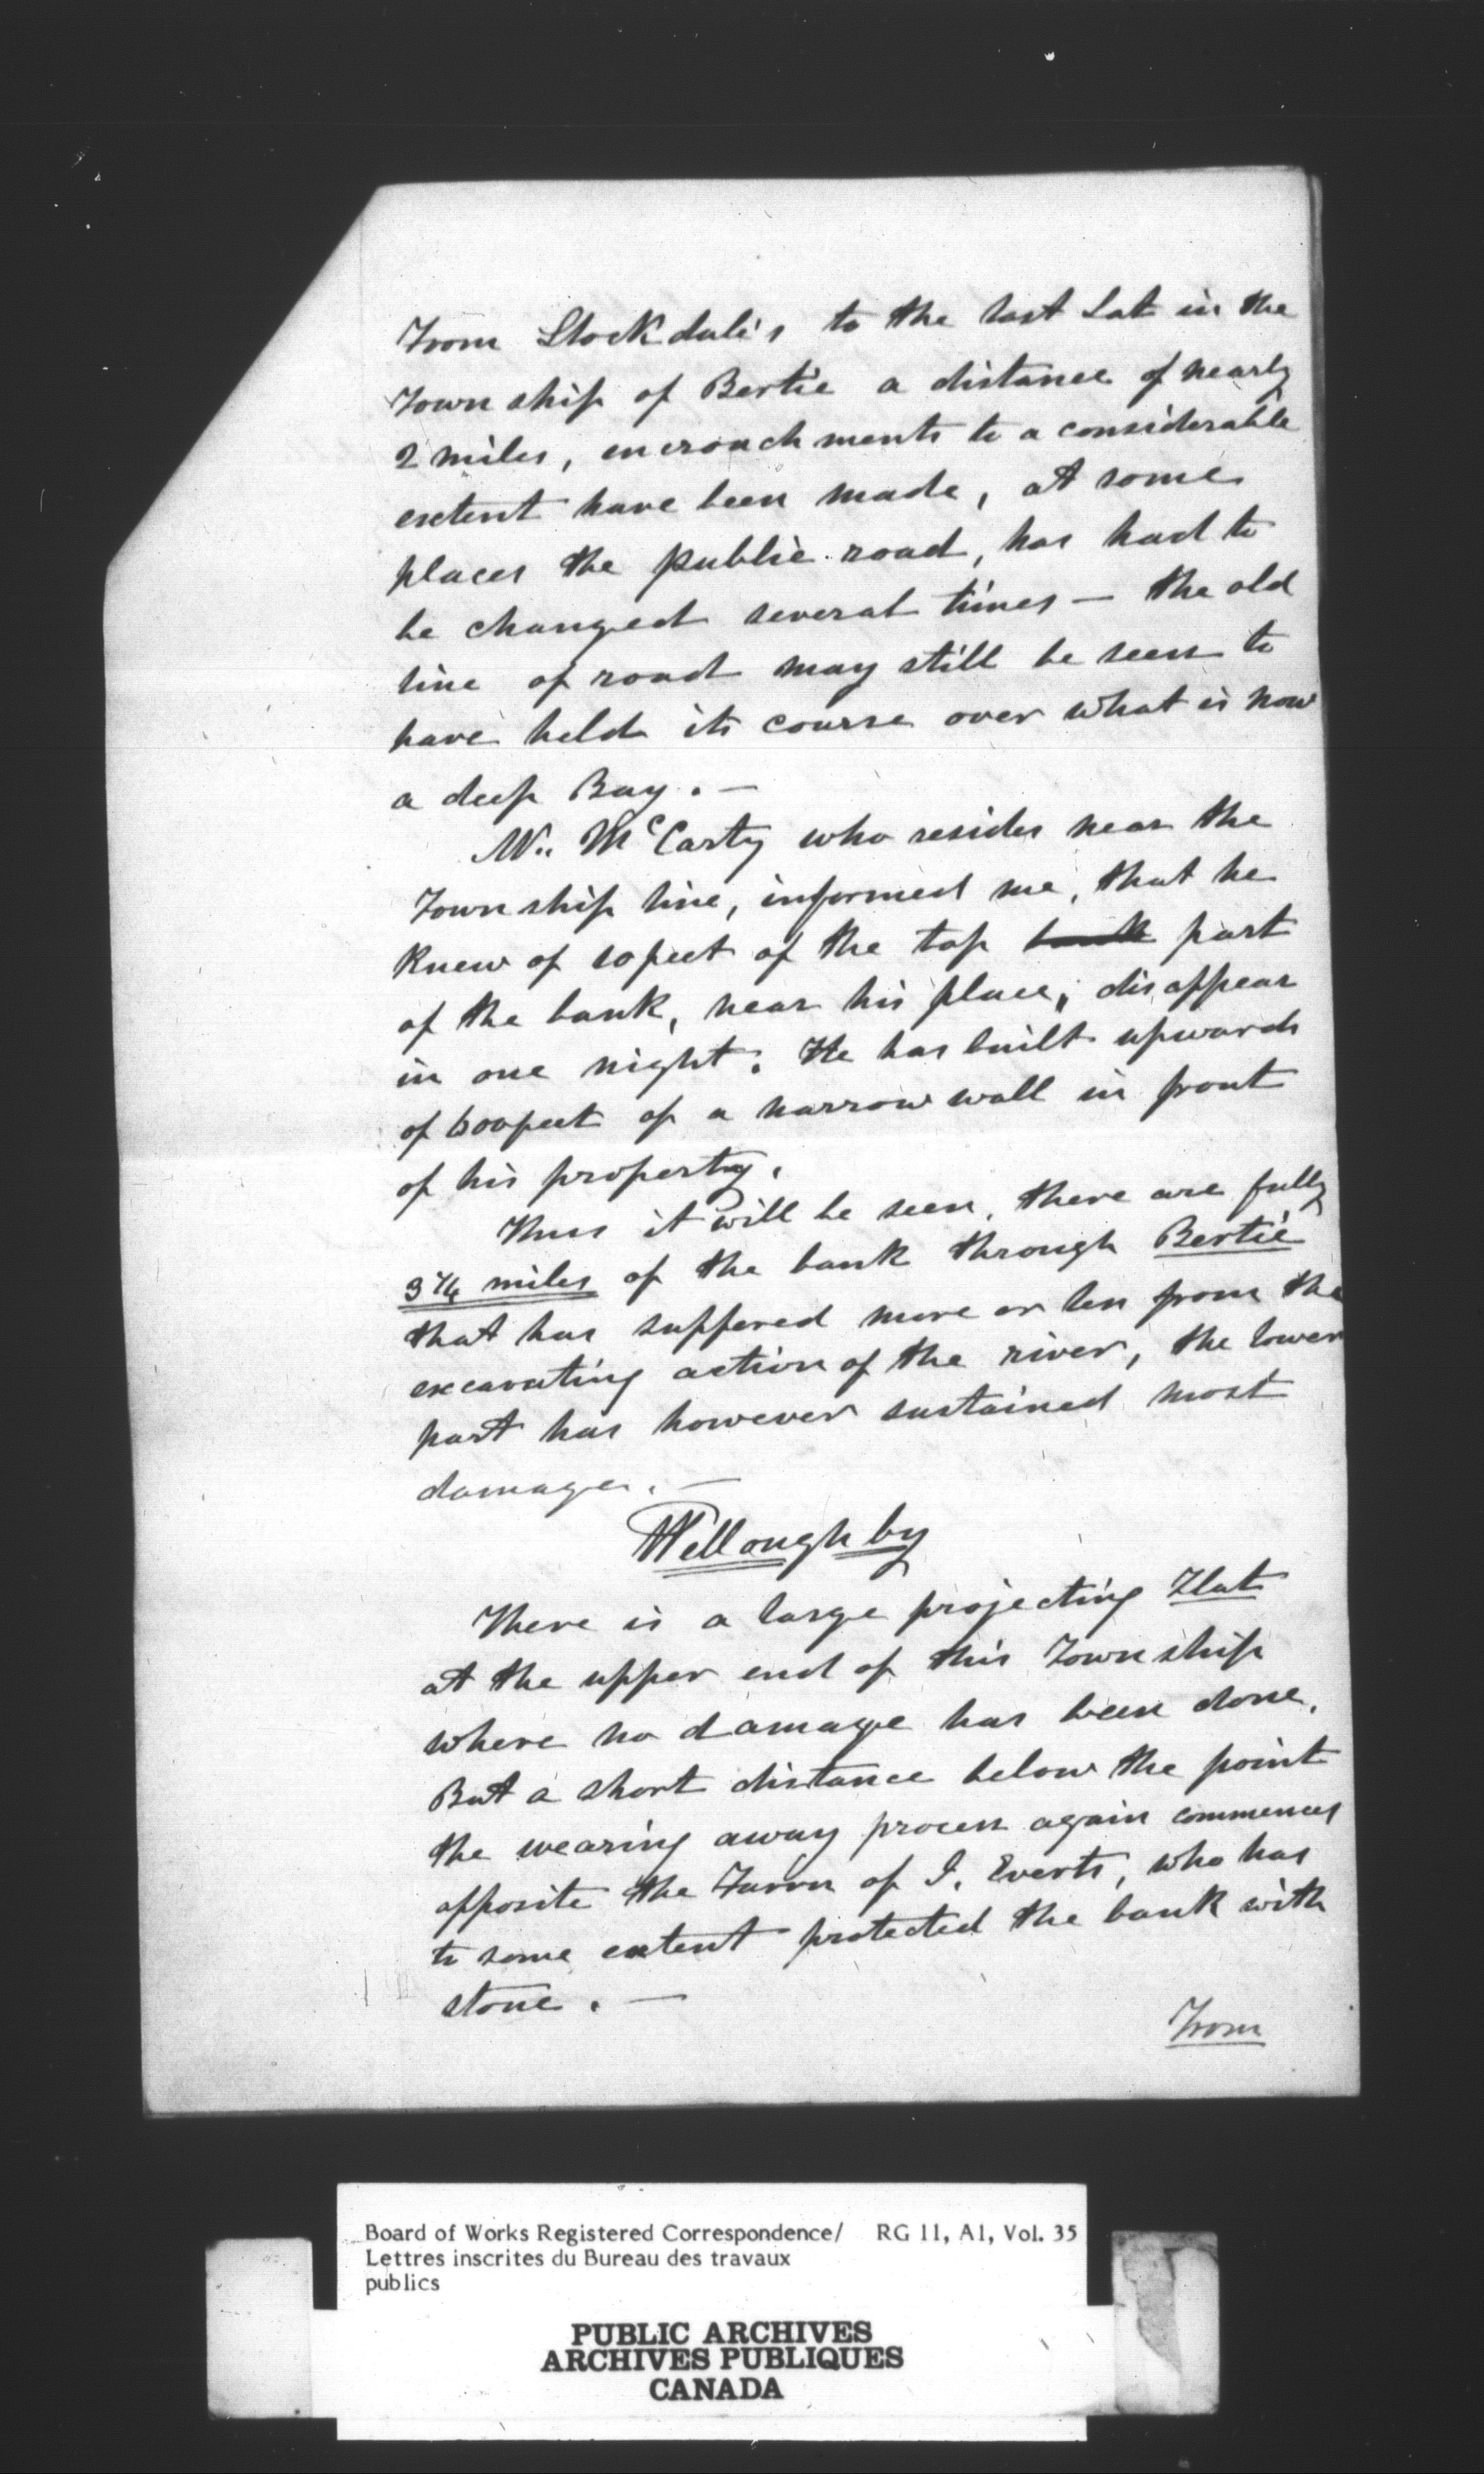 From Stockdale's to the last Lot in the
Township of Bertie a distance of nearly
2 miles, encroachments to a considerable
extent have been made, at some
places the public road, has had to
be changed several times — the old
line of road may still be seen to
have held its course over what is now
a deep Bay. —
Mr. McCarty who resides near the
Township line, informed me, that he
knew of 10 feet of the top bank part
of the bank, near his place, disappear
in one night. He has built upwards
of 600 feet of a narrow wall in front
of his property.
Thus it will be seen, there are fully
miles of the bank through Bertie
that has suffered more or less from the
excavating action of the river, the lower
part has however sustained most
damage. —
Willoughby
There is a large projecting Flat
at the upper end of this Township
where no damage has been done.
But a short distance below the point
the wearing away process again commences
opposite the Farm of I. Everts, who has
to some extent protected the bank with
stone. —
From
Board of Works Registered Correspondence/ RG 11, A1, Vol. 35
Lettres inscrites du Bureau des travaux
publics
PUBLIC ARCHIVES
ARCHIVES PUBLIQUES
CANADA